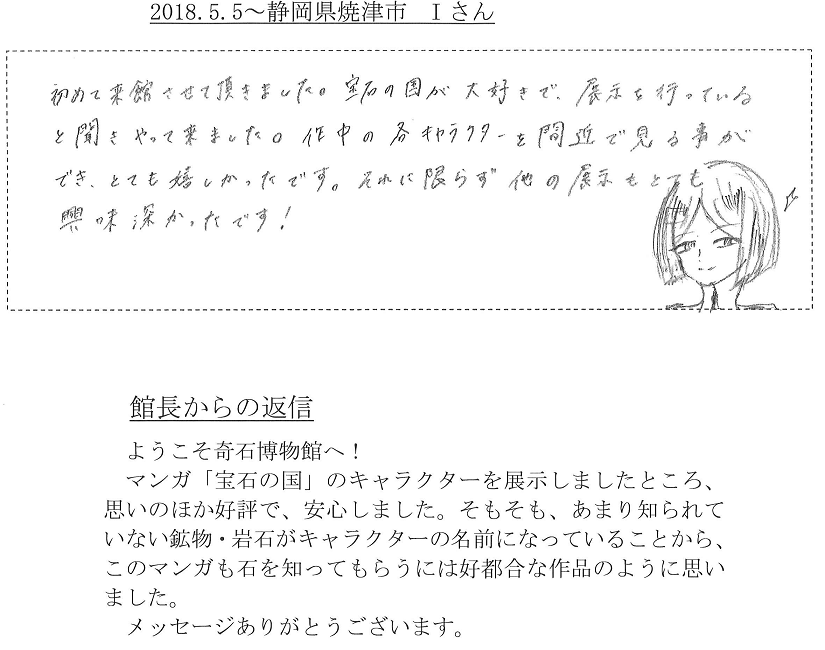 2018.5.5～静岡県焼津市　Ｉさん
初めて来館させて頂きました。宝石の国が大好きで、展示を行っている
と聞きやって来ました。作中の各キャラクターを間近で見る事が
でき、とても嬉しかったです。それに限らず他の展示もとても
興味深かったです！
館長からの返信
ようこそ奇石博物館へ！
マンガ「宝石の国」のキャラクターを展示しましたところ、
思いのほか好評で、安心しました。そもそも、あまり知られて
いない鉱物・岩石がキャラクターの名前になっていることから、
このマンガも石を知ってもらうには好都合な作品のように思い
ました。
メッセージありがとうございます。